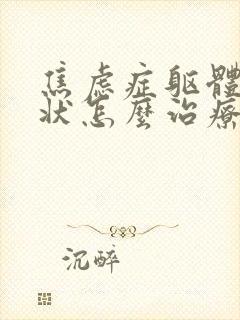 焦虑症躯體
状怎麼治療
沉醉